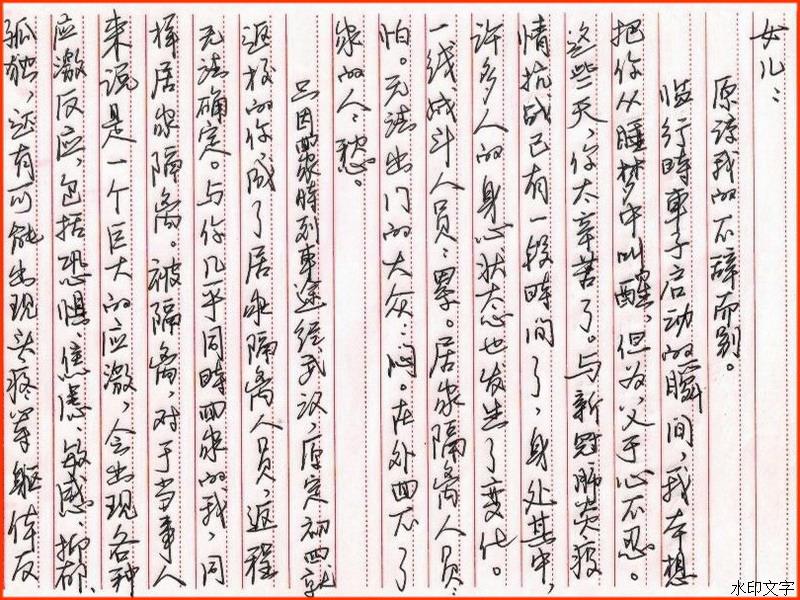 女儿：
原谅我的不辞而别。
临行时车子启动的瞬间，我本想
把你从睡梦中叫醒，但为父于心不忍。
这些天，你太辛苦了。与新冠肺炎疫
情抗战已有一段时间了，身处其中，
许多人的身心状态也发生了变化。
一线战斗人员：累。居家隔离人员：
怕。无法出门的大众：闷。在外回不了
家的人：愁。
只因回家时列车途经武汉，原定初四就
返校的你成了居家隔离人员，返程
无法确定。与你几乎同时回家的我，同
样居家隔离。被隔离，对于当事人
来说是一个巨大的应激，会出现各种
应激反应，包括恐惧、焦虑、敏感、抑郁、
孤独，还有可能出现头疼等躯体反
水印文字